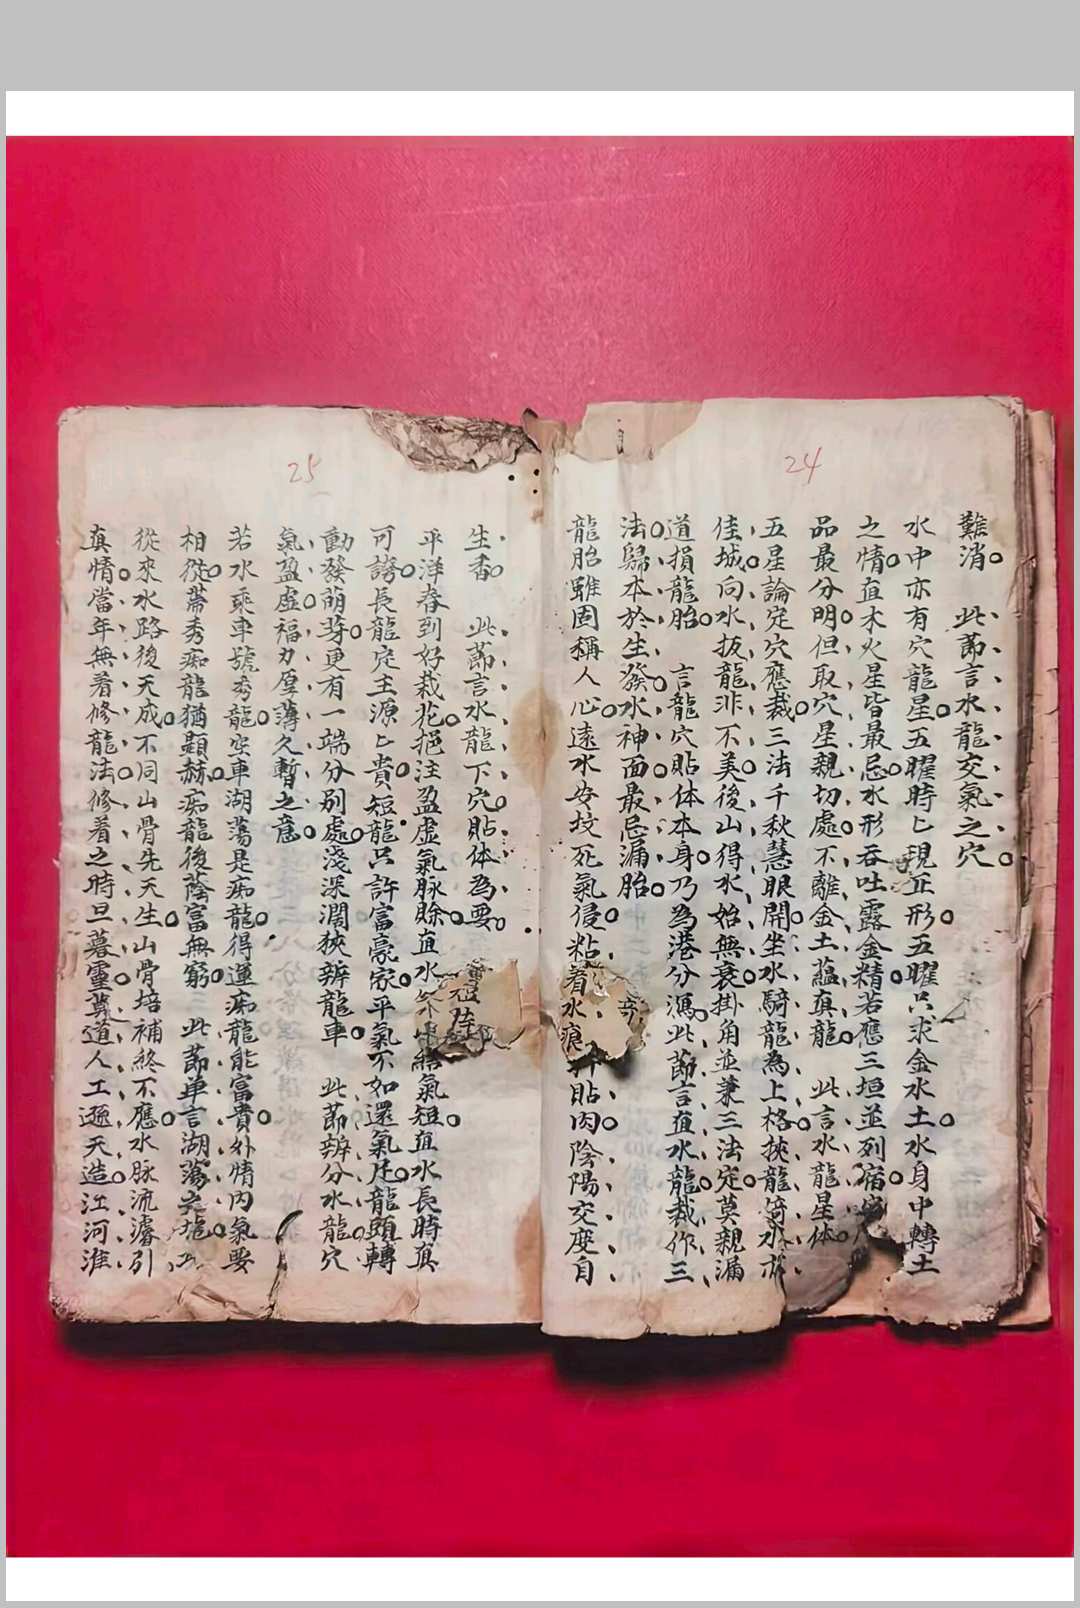 24
難消。 此節言水龍交氣之穴。
水中亦有穴龍星。五曜時〻現正形。五曜只求金水土。水身中轉土
之情。直木火星皆最忌。水形吞吐露金精。若應三垣並列宿。
品最分明。但取穴星親切處。不離金土蘊真龍。 此言水龍星体。
五星論定穴應裁。三法千秋慧眼開。坐水騎龍為上格。挾龍倚水亦
佳城。向水扳龍非不美。後山得水始無衰。掛角並兼三法定。莫親漏
道損龍胎。 言龍穴貼体本身。乃為港分瀉。此節言直水龍。裁作三
法。歸本於生發。水神面最忌漏胎。
龍胎雖固稱人心。遠水安墳死氣侵。粘着水痕 貼肉。陰陽交度自
25
生香。 此節言水龍下穴。貼体為要。
平洋春到好栽花。挹注盈虛氣脉賒。直水 結氣短。直水長時真
可誇。長龍定主源〻貴。短龍只許富豪家。平氣不如還氣足。龍頭轉
動發萌芽。更有一端分別處。淺深濶狹辨龍車。 此節辨分水龍。穴
氣盈虛。福力厚薄久暫之意。
若水乘車號秀龍。安車湖蕩是痴龍。得運痴龍能富貴。外情內氣要
相從。帶秀痴龍猶顯赫。痴龍後蔭富無窮。 此節单言湖蕩
從來水路後天成。不同山骨先天生。山骨培補終不應。水脉流濬引
真情。當年無着修龍法。修着之時旦暮靈。算道人工遜天造。江河淮